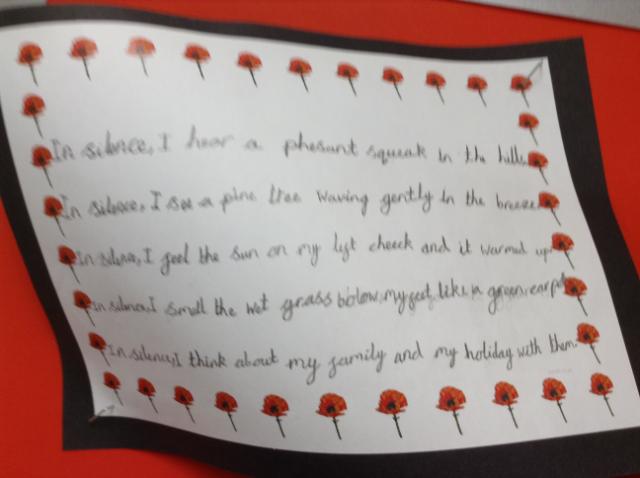 In silence, I hear a phesant squeak in the hills
In silence, I see a pine tree waving gently in the breeze
In silence, I feel the sun on my left cheeck and it warmed up
In silence, I smell the wet grass bolow my feet like a green carpet
In silence, I think about my family and my holiday with them.